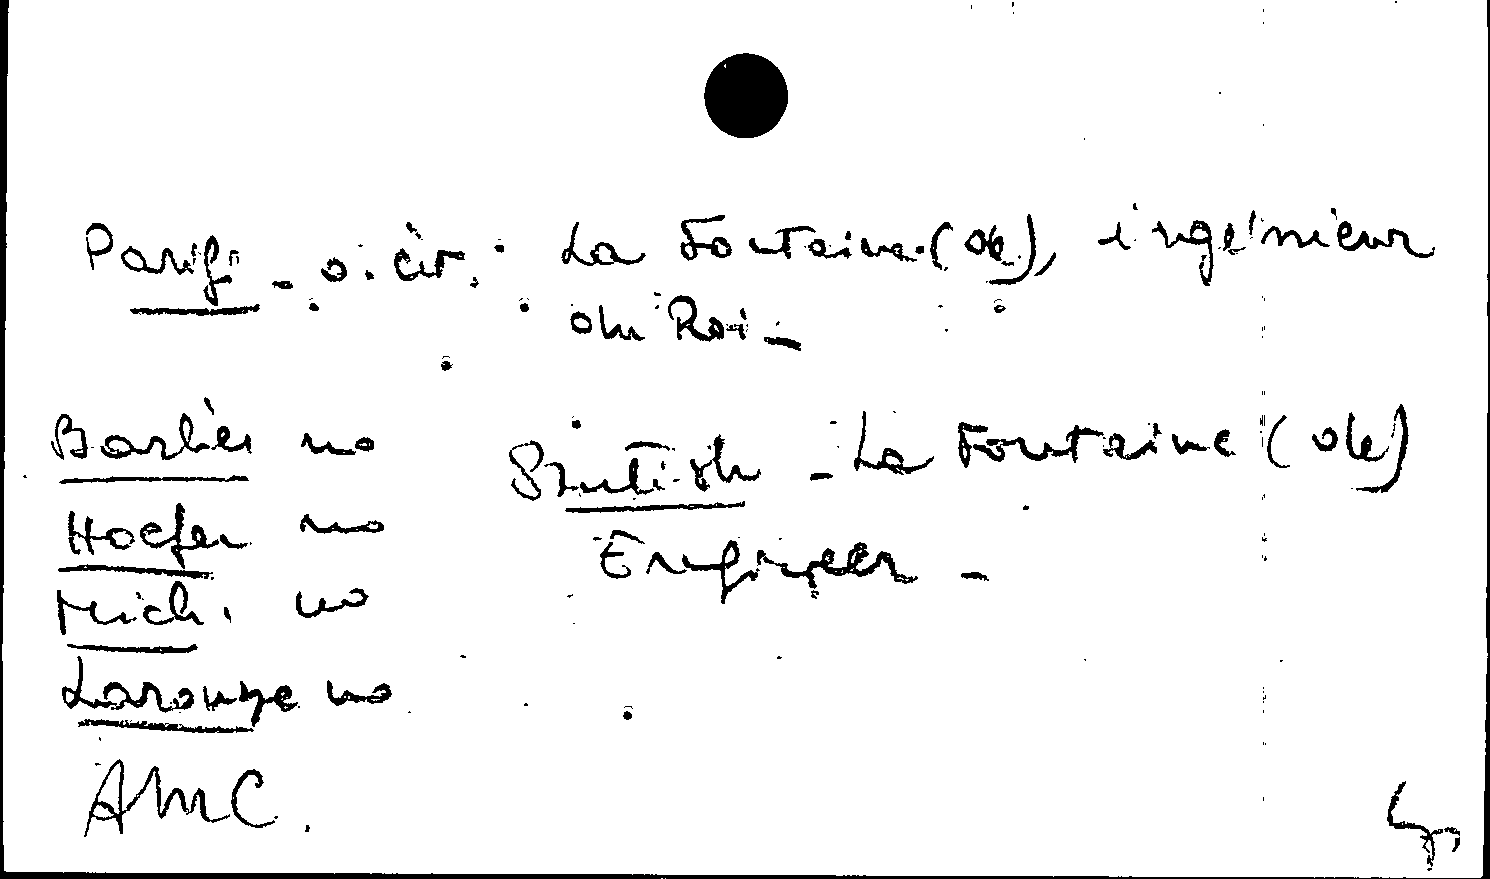 Parigi - o. cit. : La Fontaine (de), ingénieur
du Roi -
Barbier no
British - La Fontaine (de)
Hoefer no
Engineer -
Mich. no
Larousse no
AMC.